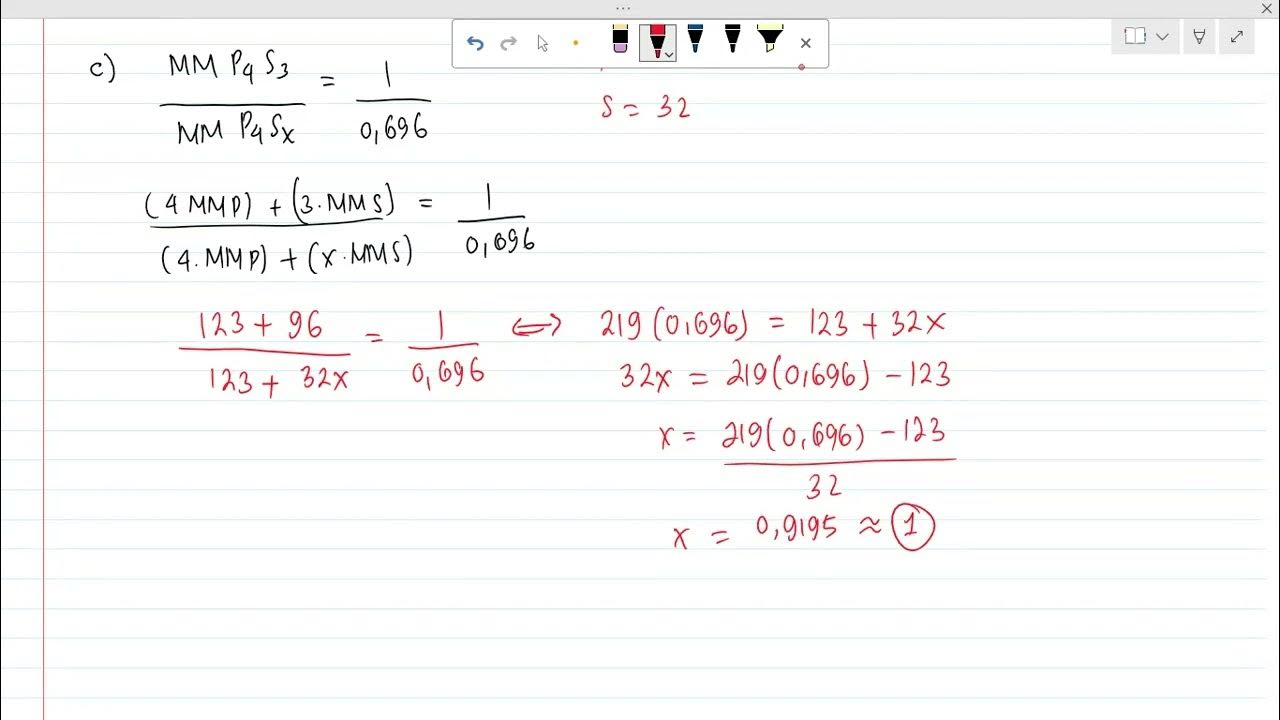 c) MM P₄S₃ / MM P₄Sₓ = 1 / 0,696
S = 32
(4 MMP) + (3·MMS) / (4·MMP) + (x·MMS) = 1 / 0,696
123 + 96 / 123 + 32x = 1 / 0,696 ⟺ 219(0,696) = 123 + 32x
32x = 219(0,696) − 123
x = 219(0,696) − 123 / 32
x = 0,9195 ≈ 1